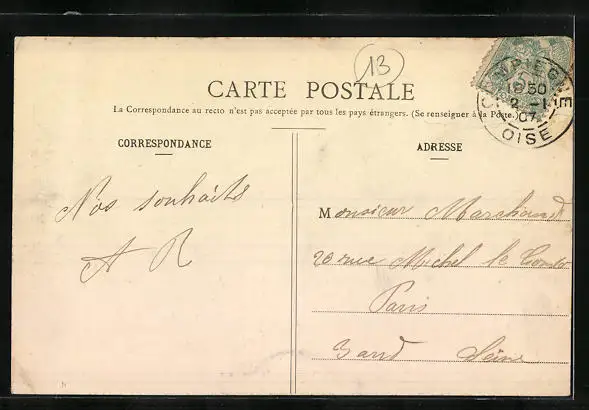 13
CARTE POSTALE
La Correspondance au recto n'est pas acceptée par tous les pays étrangers. (Se renseigner à la Poste.)
COMPIEGNE
18 50
2 -1
07
OISE
CORRESPONDANCE
Nos souhaits
A R
ADRESSE
Monsieur Marchand
20 rue Michel le Comte
Paris
3 ard Seine